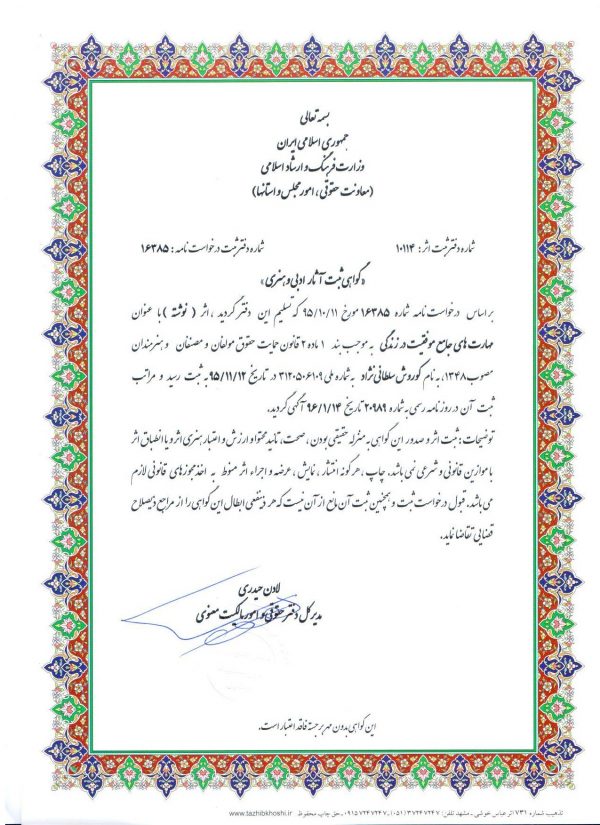 بسمه تعالی
جمهوری اسلامی ایران
وزارت فرهنگ و ارشاد اسلامی
(معاونت حقوقی، امور مجلس و استانها)
شماره دفتر ثبت اثر: ۱۰۱۱۴ شماره دفتر ثبت درخواست نامه: ۱۶۳۸۵
«گواهی ثبت آثار ادبی و هنری»
بر اساس درخواست نامه شماره ۱۶۳۸۵ مورخ ۹۵/۱۰/۱۱ که تسلیم این دفتر گردید، اثر (نوشته) با عنوان
مهارت های جامع موفقیت در زندگی به موجب بند ۱ ماده ۲ قانون حمایت حقوق مولفان و مصنفان و هنرمندان
مصوب ۱۳۴۸، به نام کوروش سلطانی نژاد به شماره ملی ۳۱۲۰۵۰۶۱۰۹ در تاریخ ۹۵/۱۱/۱۲ به ثبت رسید و مراتب
ثبت آن در روزنامه رسمی به شماره ۲۰۹۸۹ تاریخ ۹۶/۱/۱۴ آگهی گردید.
توضیحات: ثبت اثر و صدور این گواهی به منزله حقیقی بودن، صحت، تائید محتوا و ارزش و اعتبار هنری اثر و یا انطباق اثر
با موازین قانونی و شرعی نمی باشد. چاپ، هر گونه انتشار، نمایش، عرضه و اجراء اثر منوط به اخذ مجوزهای قانونی لازم
می باشد. قبول درخواست ثبت و همچنین ثبت آن مانع از آن نیست که هر ذینفعی ابطال این گواهی را از مراجع ذیصلاح
قضایی تقاضا نماید.
لادن حیدری
مدیر کل دفتر حقوقی و امور مالکیت معنوی
این گواهی بدون مهر برجسته فاقد اعتبار است.
تذهیب شماره ۷۳۱ اثر عباس خوشی ـ مشهد تلفن: ۳۷۲۴۷۲۴۷ (۰۵۱) ـ ۰۹۱۵۷۲۴۷۲۴۷ ـ حق چاپ محفوظ www.tazhibkhoshi.ir